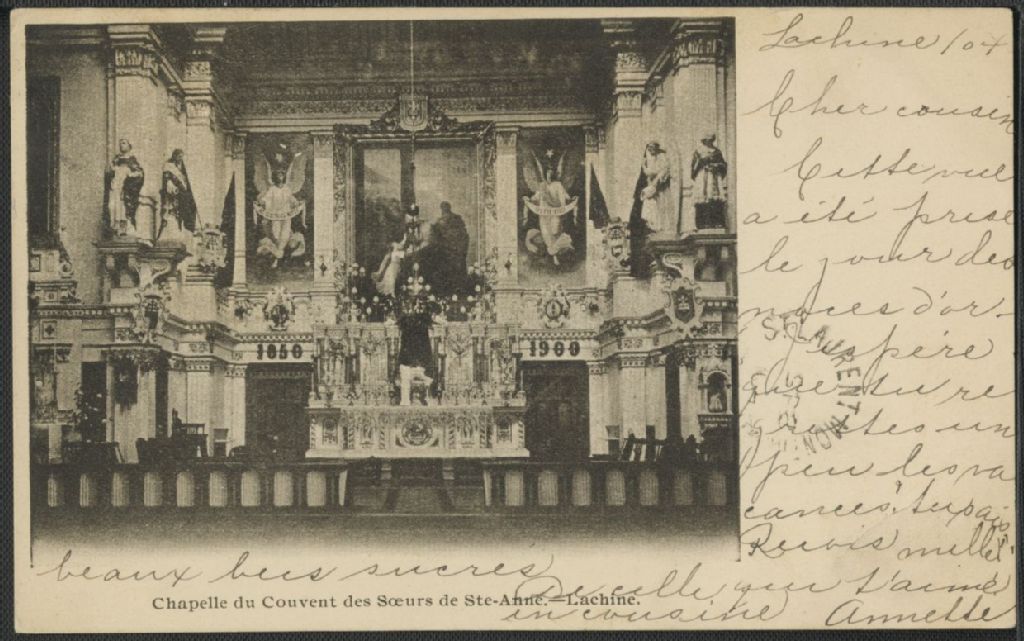 Lachine /04
Cher cousin
Cette vue
a été prise
le jour des
noces d'or.
J'espère
que tu re
grettes un
peu les va
cances.
Reçois mille
beaux becs sucrés
De celle qui t'aime
en cousine Annette
1850
1900
ST LAURENT MON
Chapelle du Couvent des Sœurs de Ste-Anne.—Lachine.